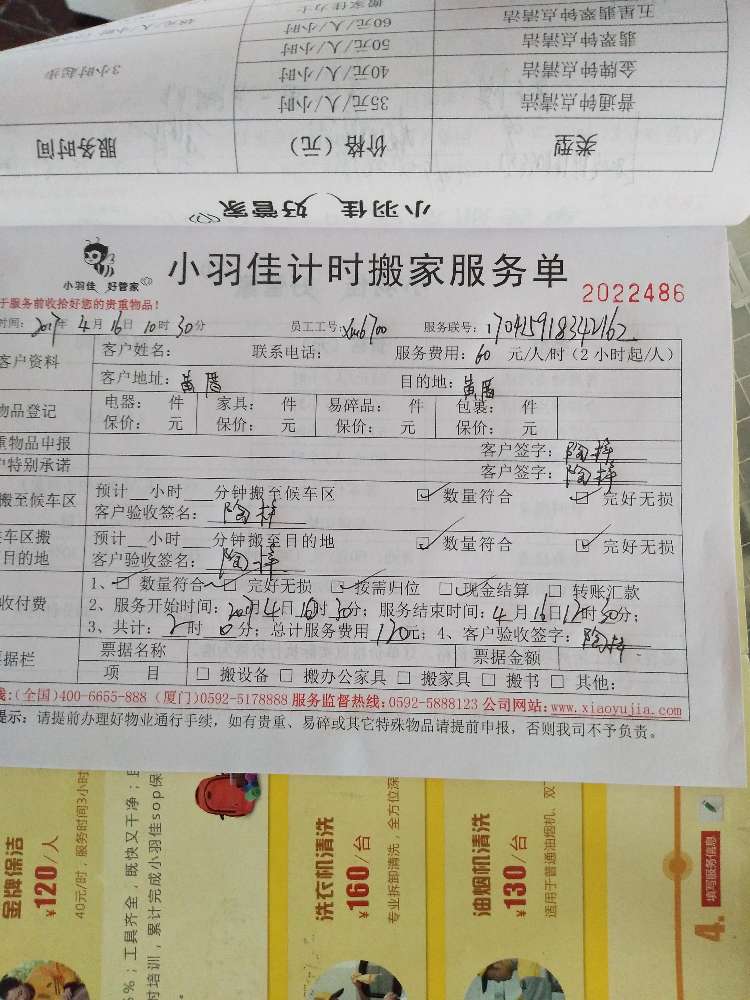 搬家佳力士
五星翡翠钟点清洁 60元/人/小时
翡翠钟点清洁 50元/人/小时
金牌钟点清洁 40元/人/小时 3小时起步
普通钟点清洁 35元/人/小时
类型 价格（元） 服务时间
小羽佳 好管家
小羽佳 好管家
小羽佳计时搬家服务单
2022486
于服务前收拾好您的贵重物品！
时间：2017年4月16日10时30分 员工工号：xm6700 服务联号：
客户资料
客户姓名： 联系电话： 服务费用：60 元/人/时（2小时起/人）
客户地址：黄厝 目的地：黄厝
物品登记
电器： 件 家具： 件 易碎品： 件 包裹： 件
保价： 元 保价： 元 保价： 元 保价： 元
重物品申报 客户签字：陶梓
户特别承诺 客户签字：陶梓
搬至候车区
预计__小时___分钟搬至候车区 数量符合 完好无损
客户验收签名：陶梓
车区搬
目的地
预计__小时___分钟搬至目的地 数量符合 完好无损
客户验收签名：陶梓
收付费
1、数量符合 完好无损 按需归位 现金结算 转账汇款
2、服务开始时间：4日10时30分；服务结束时间：4月16日12时30分；
3、共计：2时0分；总计服务费用120元；4、客户验收签字：陶梓
票据栏
票据名称 票据金额
项 目 搬设备 搬办公家具 搬家具 搬书 其他：
线：（全国）400-6655-888（厦门）0592-5178888 服务监督热线：0592-5888123 公司网站：www.xiaoyujia.com
提示：请提前办理好物业通行手续，如有贵重、易碎或其它特殊物品请提前申报，否则我司不予负责。
金牌保洁
¥120/人
40元/时，服务时间3小时
%；工具齐全，既快又干净；
时培训，累计完成小羽佳sop保
洗衣机清洗
¥160/台
专业拆卸清洗，全方位深
油烟机清洗
¥130/台
适用于普通油烟机、双
4.
填写服务信息